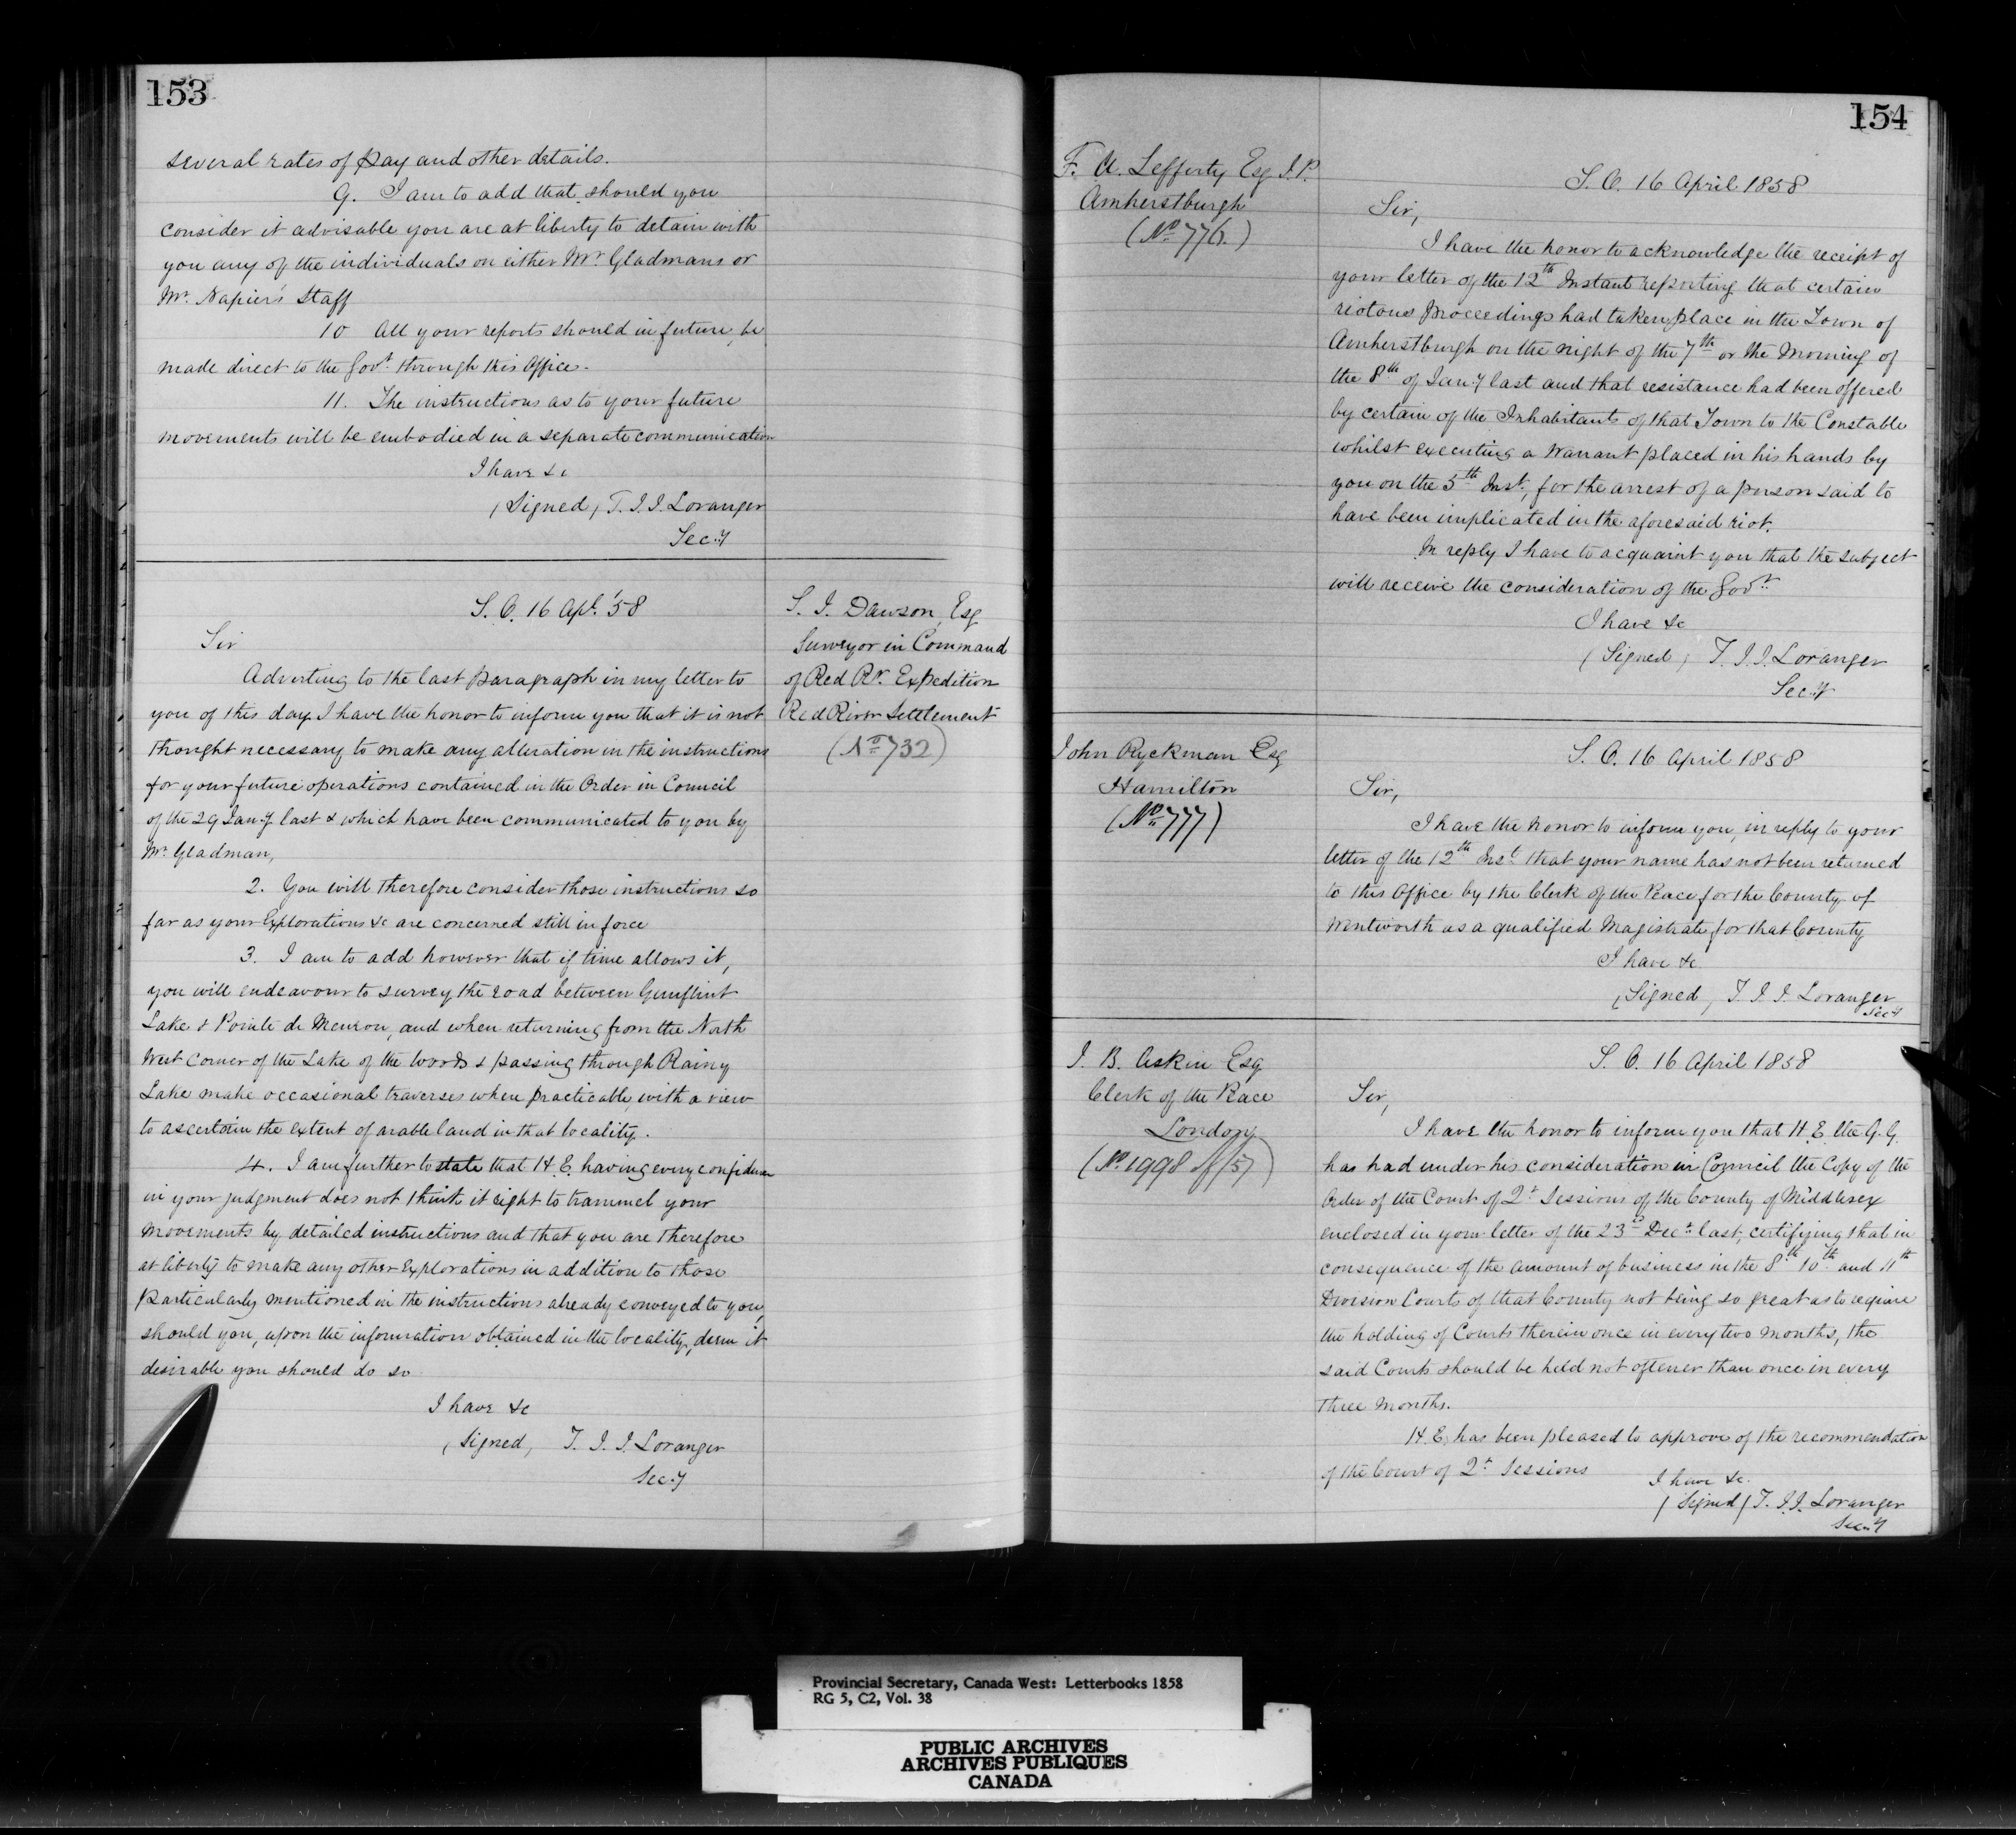 153
several rates of pay and other details.
9. I am to add that should you
consider it advisable you are at liberty to detain with
you any of the individuals on either Mr. Gladmans or
Mr. Napier's Staff
10 All your reports should in future, be
made direct to the Govt. through this Office.
11. The instructions as to your future
movements will be embodied in a separate communication
I have &c
(Signed) T. J. J. Loranger
Secy
S. O. 16 Apl. '58
S. J. Dawson, Esq
Surveyor in Command
of Red Rr. Expedition
Red River Settlement
(No 732)
Sir
Adverting to the last paragraph in my letter to
you of this day I have the honor to inform you that it is not
thought necessary to make any alteration in the instructions
for your future operations contained in the Order in Council
of the 29 Jany last & which have been communicated to you by
Mr. Gladman,
2. You will therefore consider those instructions so
far as your Explorations &c are concerned still in force
3. I am to add however that if time allows it,
you will endeavour to survey the road between Gunflint
Lake & Pointe de Meuron, and when returning from the North
West Corner of the Lake of the Woods & passing through Rainy
Lake make occasional traverses when practicable, with a view
to ascertain the extent of arable land in that locality.
4. I am further to state that H. E. having every confidence
in your judgment does not think it right to trammel your
movements by detailed instructions and that you are therefore
at liberty to make any other Explorations in addition to those
particularly mentioned in the instructions already conveyed to you,
should you, upon the information obtained in the locality, deem it
desirable you should do so
I have &c
(Signed) T. J. J. Loranger
Secy
154
F. A. Lefferty Esq J. P.
Amherstburgh
(No 776.)
S. O. 16 April 1858
Sir,
I have the honor to acknowledge the receipt of
your letter of the 12th Instant reporting that certain
riotous proceedings had taken place in the Town of
Amherstburgh on the night of the 7th or the Morning of
the 8th of Jany last and that resistance had been offered
by certain of the Inhabitants of that Town to the Constable
whilst executing a Warrant placed in his hands by
you on the 5th Inst., for the arrest of a person said to
have been implicated in the aforesaid riot.
In reply I have to acquaint you that the subject
will receive the consideration of the Govt.
I have &c
(Signed) T. J. J. Loranger
Secy
John Ryckman Esq
Hamilton
(No 777)
S. O. 16 April 1858
Sir,
I have the honor to inform you, in reply to your
letter of the 12th Inst. that your name has not been returned
to this Office by the Clerk of the Peace for the County of
Wentworth as a qualified Magistrate for that County
I have &c
(Signed) T. J. J. Loranger
Secy
J. B. Askin Esq
Clerk of the Peace
London
(No 1998 of /57)
S. O. 16 April 1858
Sir,
I have the honor to inform you that H. E. the G. G.
has had under his consideration in Council the Copy of the
Order of the Court of Qr. Sessions of the County of Middlesex
enclosed in your letter of the 23rd Decr. last, certifying that in
consequence of the amount of business in the 8th 10th and 11th
Division Courts of that County not being so great as to require
the holding of Courts therein once in every two months, the
said Courts should be held not oftener than once in every
three months.
H. E. has been pleased to approve of the recommendation
of the Court of Qr. Sessions
I have &c.
(Signed) T. J. J. Loranger
Secy
Provincial Secretary, Canada West: Letterbooks 1858
RG 5, C2, Vol. 38
PUBLIC ARCHIVES
ARCHIVES PUBLIQUES
CANADA